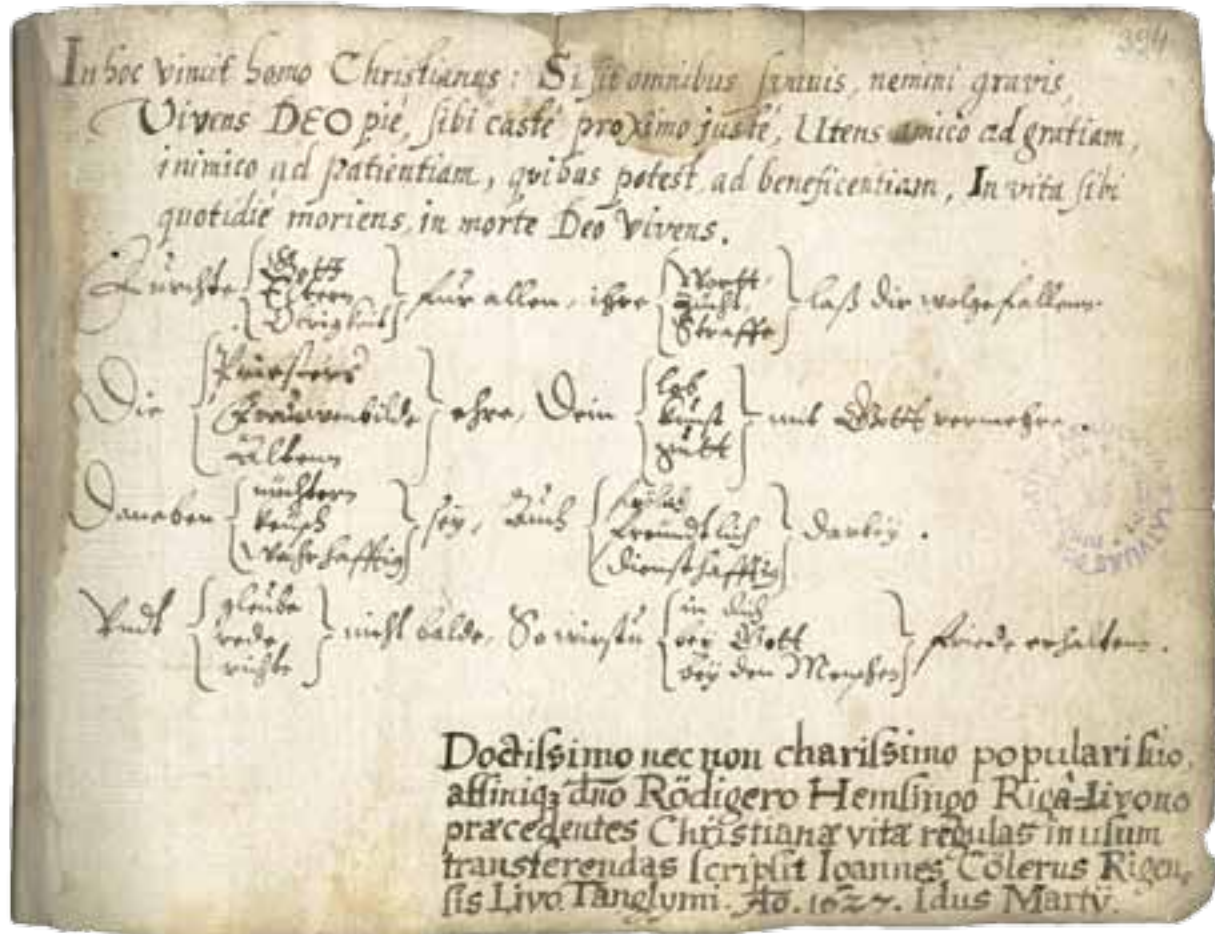 394
In hoc vincit homo Christianus: Si sit omnibus suavis, nemini gravis,
Vivens DEO pié, sibi casté proximo justé, Utens amico ad gratiam,
inimico ad patientiam, qvibus potest ad beneficentiam, In vita sibi
quotidié moriens, in morte Deo vivens.
Fürchte { Gott / Eltern / Obrigkeit } für allen, ihre { Wortt / Zucht / Straffe } laß dir wolgefallenn
Die { Priesters / Frauwenbilde / Altenn } ehre, Dein { lob / kunst / gutt } mit Gott vermehre.
Daneben { nüchtern / keusch / Wahrhafftig } sey, Auch { freundtlich / diensthafftig } darbey.
Undt { gleube / rede / richte } nicht balde, So wirstu { in dich / bey Gott / bey den Menschen } friede erhalten.
Doctissimo nec non charissimo populari suo,
affiniqȝ dno Rödigero Hemsingo Rigâ-Livono
præcedentes Christianæ vitæ regulas in usum
transferendas scripsit Ioannes Cölerus Rigen,
sis Livo. Ao. 1627. Idus Martÿ.